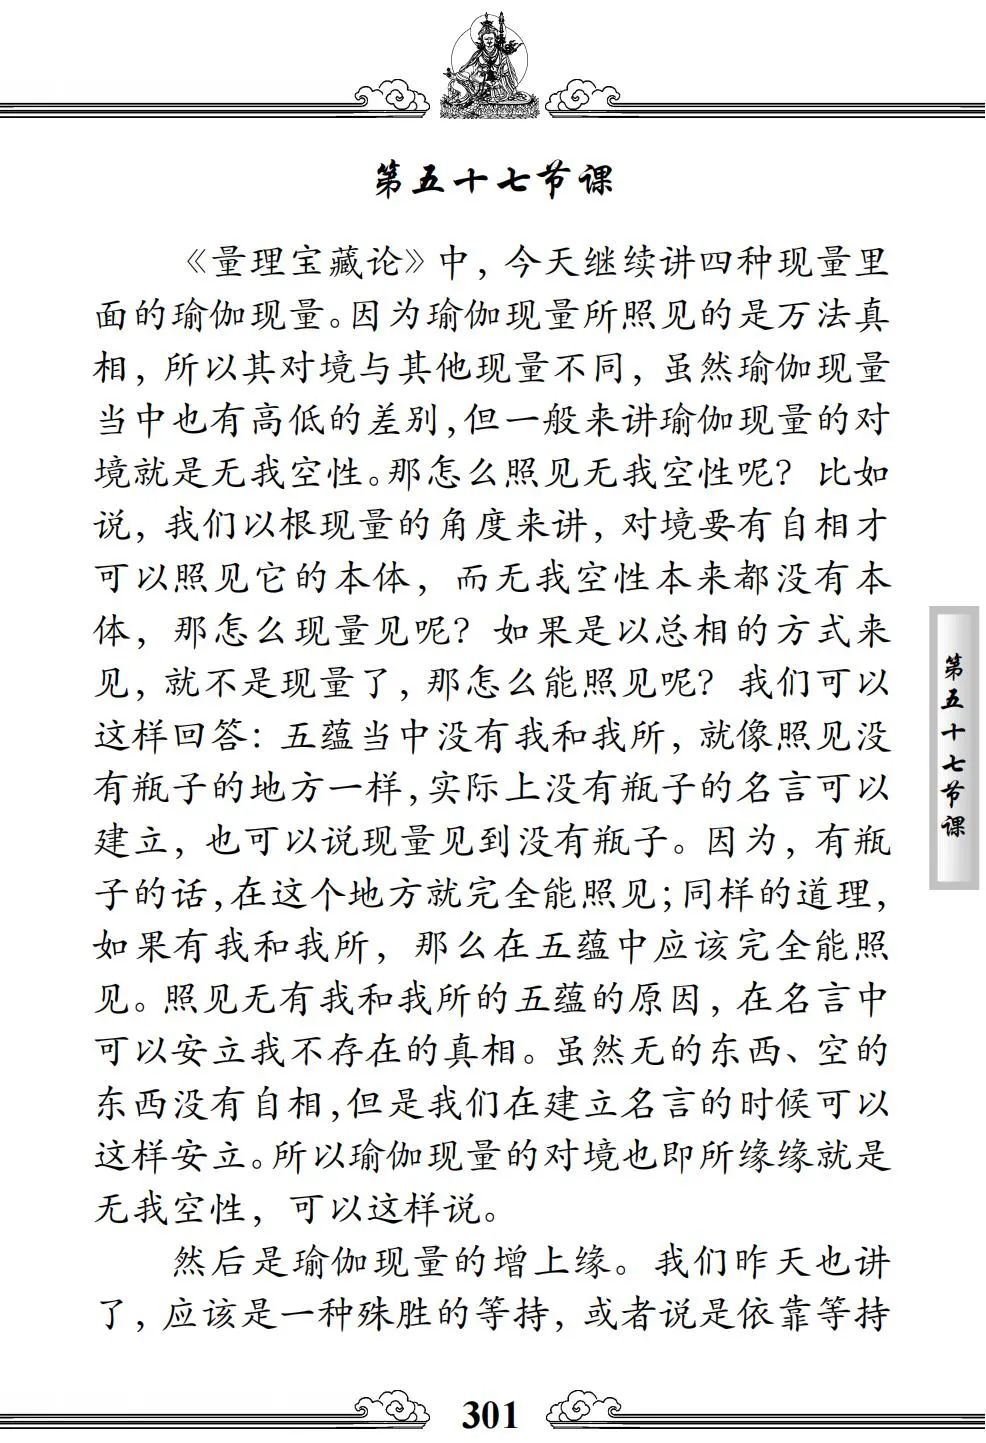 第五十七节课
《量理宝藏论》中，今天继续讲四种现量里
面的瑜伽现量。因为瑜伽现量所照见的是万法真
相，所以其对境与其他现量不同，虽然瑜伽现量
当中也有高低的差别，但一般来讲瑜伽现量的对
境就是无我空性。那怎么照见无我空性呢？比如
说，我们以根现量的角度来讲，对境要有自相才
可以照见它的本体，而无我空性本来都没有本
体，那怎么现量见呢？如果是以总相的方式来
见，就不是现量了，那怎么能照见呢？我们可以
这样回答：五蕴当中没有我和我所，就像照见没
有瓶子的地方一样，实际上没有瓶子的名言可以
建立，也可以说现量见到没有瓶子。因为，有瓶
子的话，在这个地方就完全能照见；同样的道理，
如果有我和我所，那么在五蕴中应该完全能照
见。照见无有我和我所的五蕴的原因，在名言中
可以安立我不存在的真相。虽然无的东西、空的
东西没有自相，但是我们在建立名言的时候可以
这样安立。所以瑜伽现量的对境也即所缘缘就是
无我空性，可以这样说。
然后是瑜伽现量的增上缘。我们昨天也讲
了，应该是一种殊胜的等持，或者说是依靠等持
第五十七节课
301